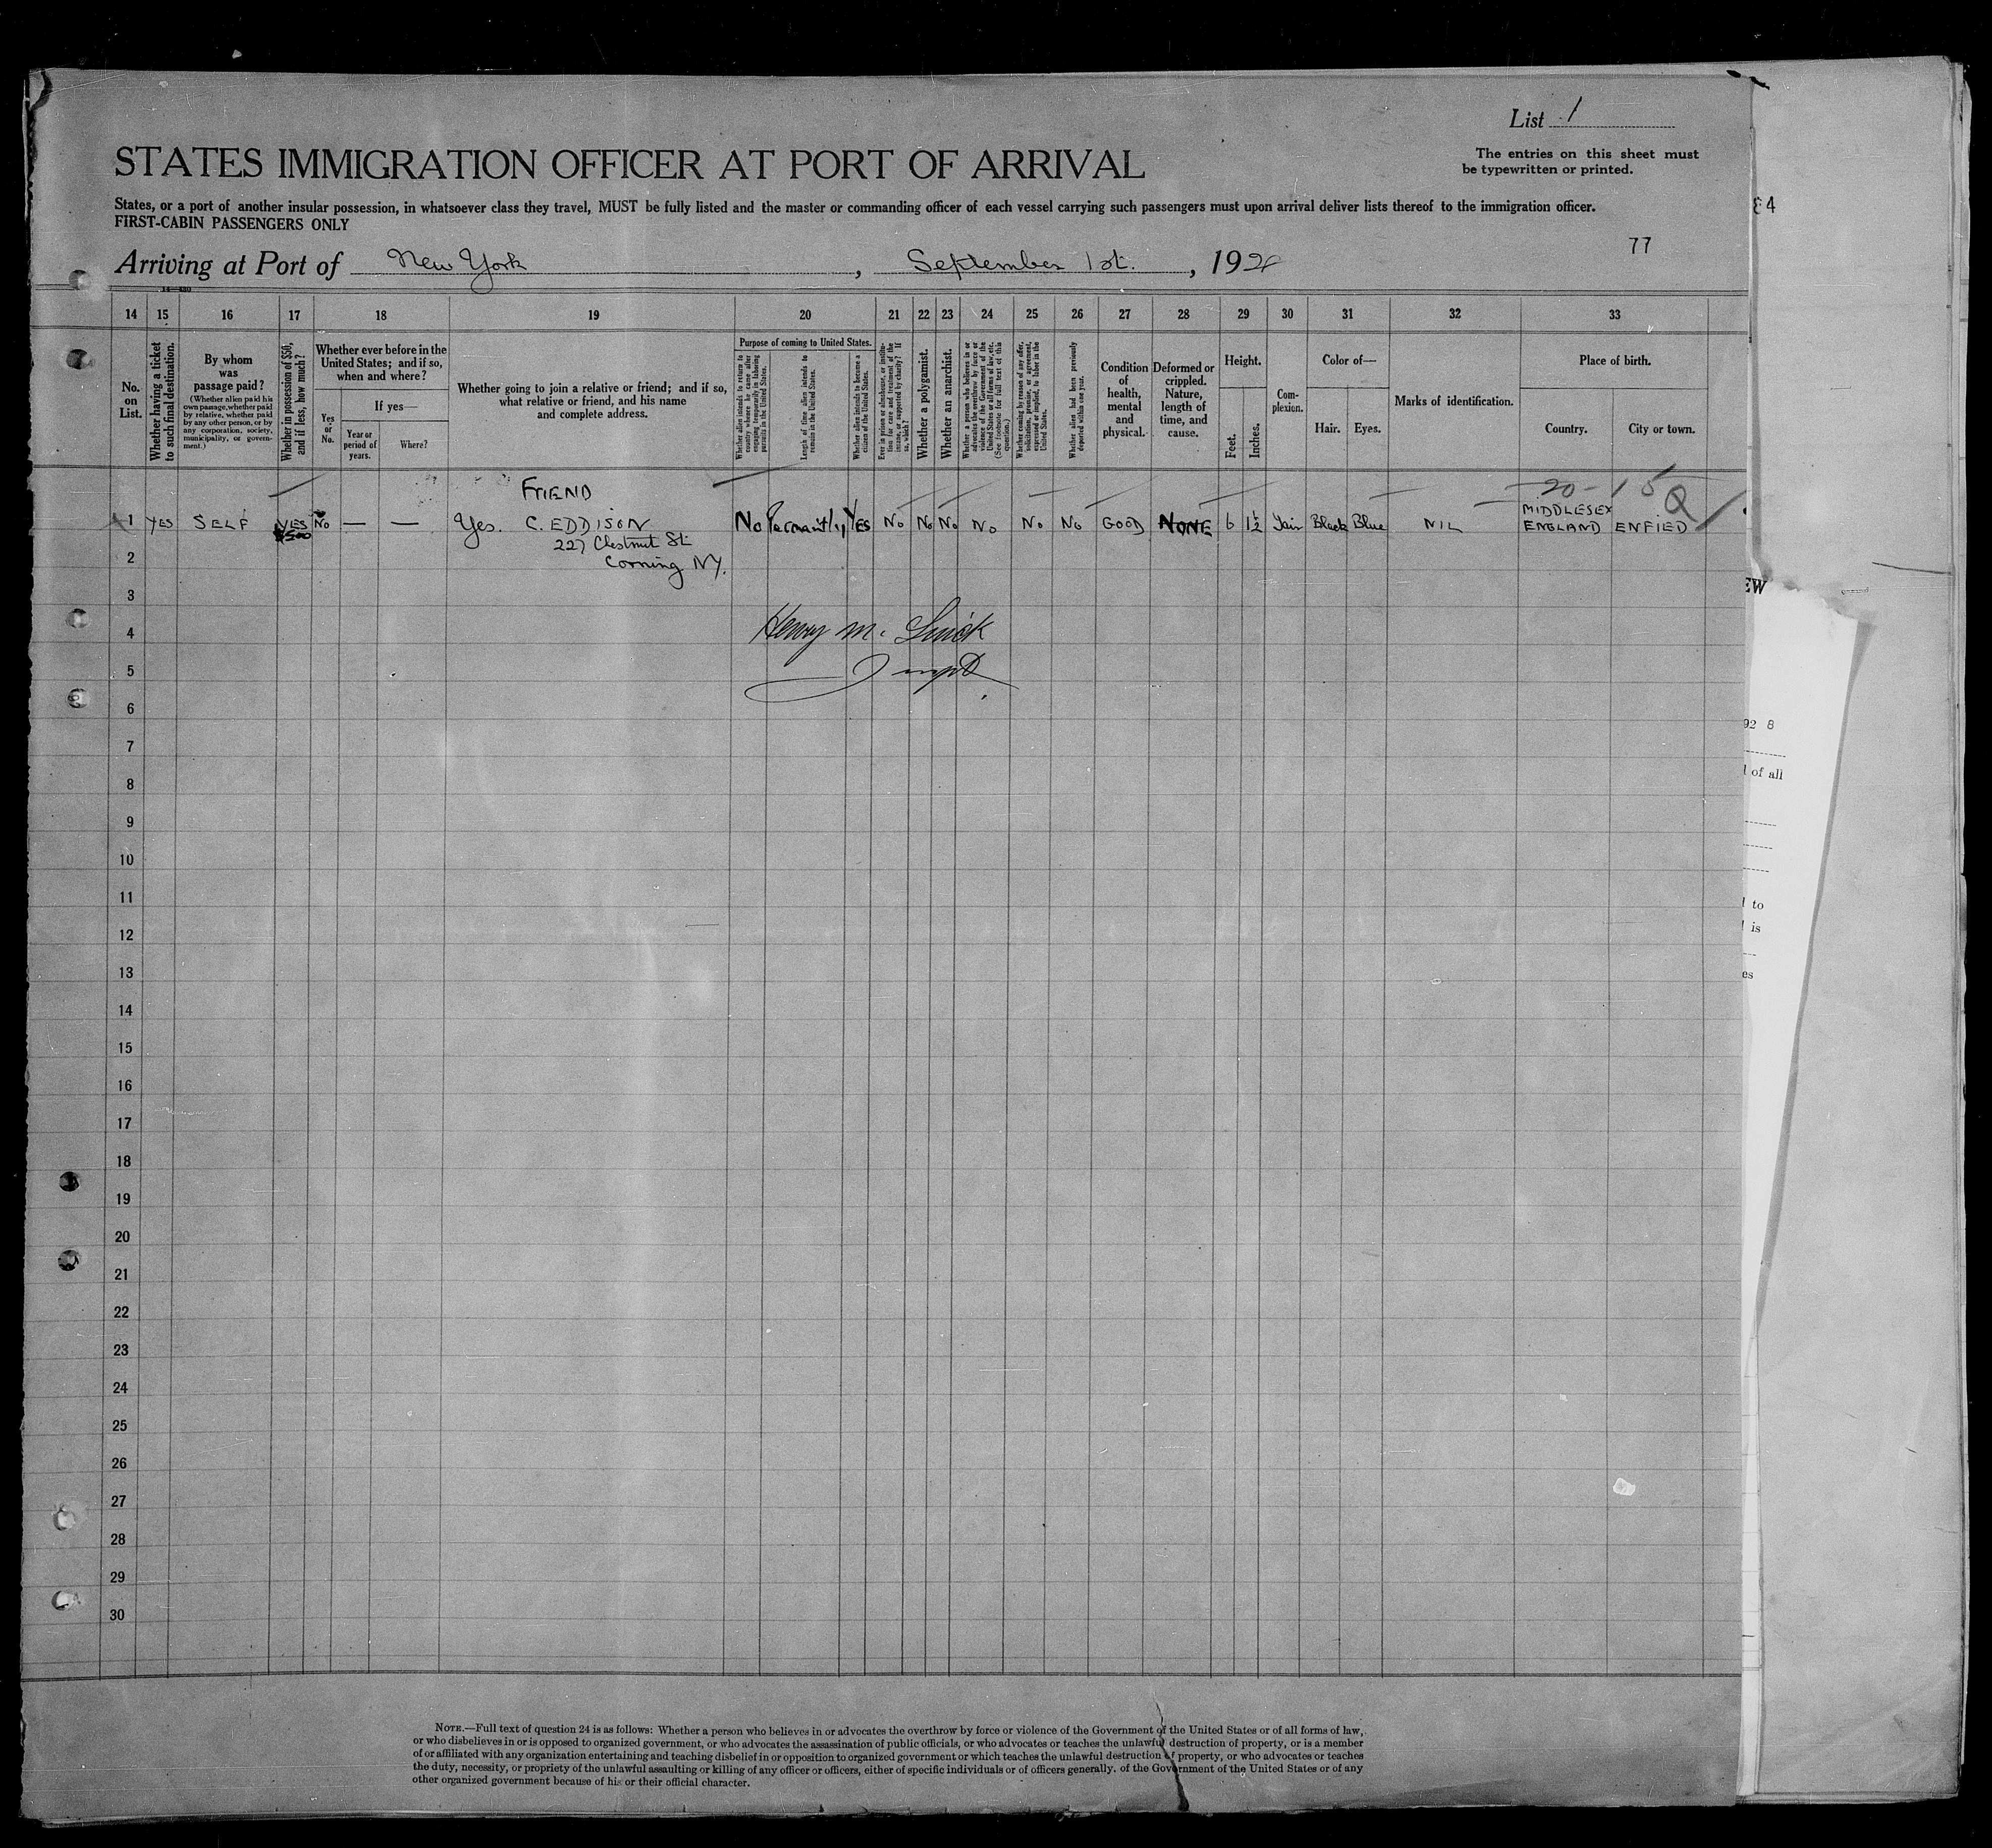 List 1
STATES IMMIGRATION OFFICER AT PORT OF ARRIVAL
The entries on this sheet must
be typewritten or printed.
States, or a port of another insular possession, in whatsoever class they travel, MUST be fully listed and the master or commanding officer of each vessel carrying such passengers must upon arrival deliver lists thereof to the immigration officer.
FIRST-CABIN PASSENGERS ONLY
84
77
Arriving at Port of New York, September 1st., 192
14 15 16 17 18 19 20 21 22 23 24 25 26 27 28 29 30 31 32 33
No.
on
List.
Whether having a ticket
to such final destination.
By whom
was
passage paid?
(Whether alien paid his
own passage, whether paid
by relative, whether paid
by any other person, or by
any corporation, society,
municipality, or govern-
ment.)
Whether in possession of $50,
and if less, how much?
Whether ever before in the
United States; and if so,
when and where?
Yes
or
No.
If yes—
Year or
period of
years.
Where?
Whether going to join a relative or friend; and if so,
what relative or friend, and his name
and complete address.
Purpose of coming to United States.
Whether alien intends to return to
country whence he came after
engaging temporarily in laboring
pursuits in the United States.
Length of time alien intends to
remain in the United States.
Whether alien intends to become a
citizen of the United States.
Ever in prison or almshouse, or institu-
tion for care and treatment of the
insane, or supported by charity? If
so, which?
Whether a polygamist.
Whether an anarchist.
Whether a person who believes in or
advocates the overthrow by force or
violence of the Government of the
United States or all forms of law, etc.
(See footnote for full text of this
question.)
Whether coming by reason of any offer,
solicitation, promise, or agreement,
expressed or implied, to labor in the
United States.
Whether alien had been previously
deported within one year.
Condition
of
health,
mental
and
physical.
Deformed or
crippled.
Nature,
length of
time, and
cause.
Height.
Feet.
Inches.
Com-
plexion.
Color of—
Hair.
Eyes.
Marks of identification.
Place of birth.
Country.
City or town.
FRIEND
20-15 Q
MIDDLESEX
1 YES SELF YES No — — Yes. C. EDDISON No Permantly YES No No No No No No GOOD NONE 6 1½ Fair Black Blue NIL ENGLAND ENFIED
$500
227 Chestnut St
2 Corning NY.
3
4 Henry M.
5
6
7
8
9
10
11
12
13
14
15
16
17
18
19
20
21
22
23
24
25
26
27
28
29
30
EW
92 8
of all
to
is
es
NOTE.—Full text of question 24 is as follows: Whether a person who believes in or advocates the overthrow by force or violence of the Government of the United States or of all forms of law,
or who disbelieves in or is opposed to organized government, or who advocates the assassination of public officials, or who advocates or teaches the unlawful destruction of property, or is a member
of or affiliated with any organization entertaining and teaching disbelief in or opposition to organized government or which teaches the unlawful destruction of property, or who advocates or teaches
the duty, necessity, or propriety of the unlawful assaulting or killing of any officer or officers, either of specific individuals or of officers generally, of the Government of the United States or of any
other organized government because of his or their official character.